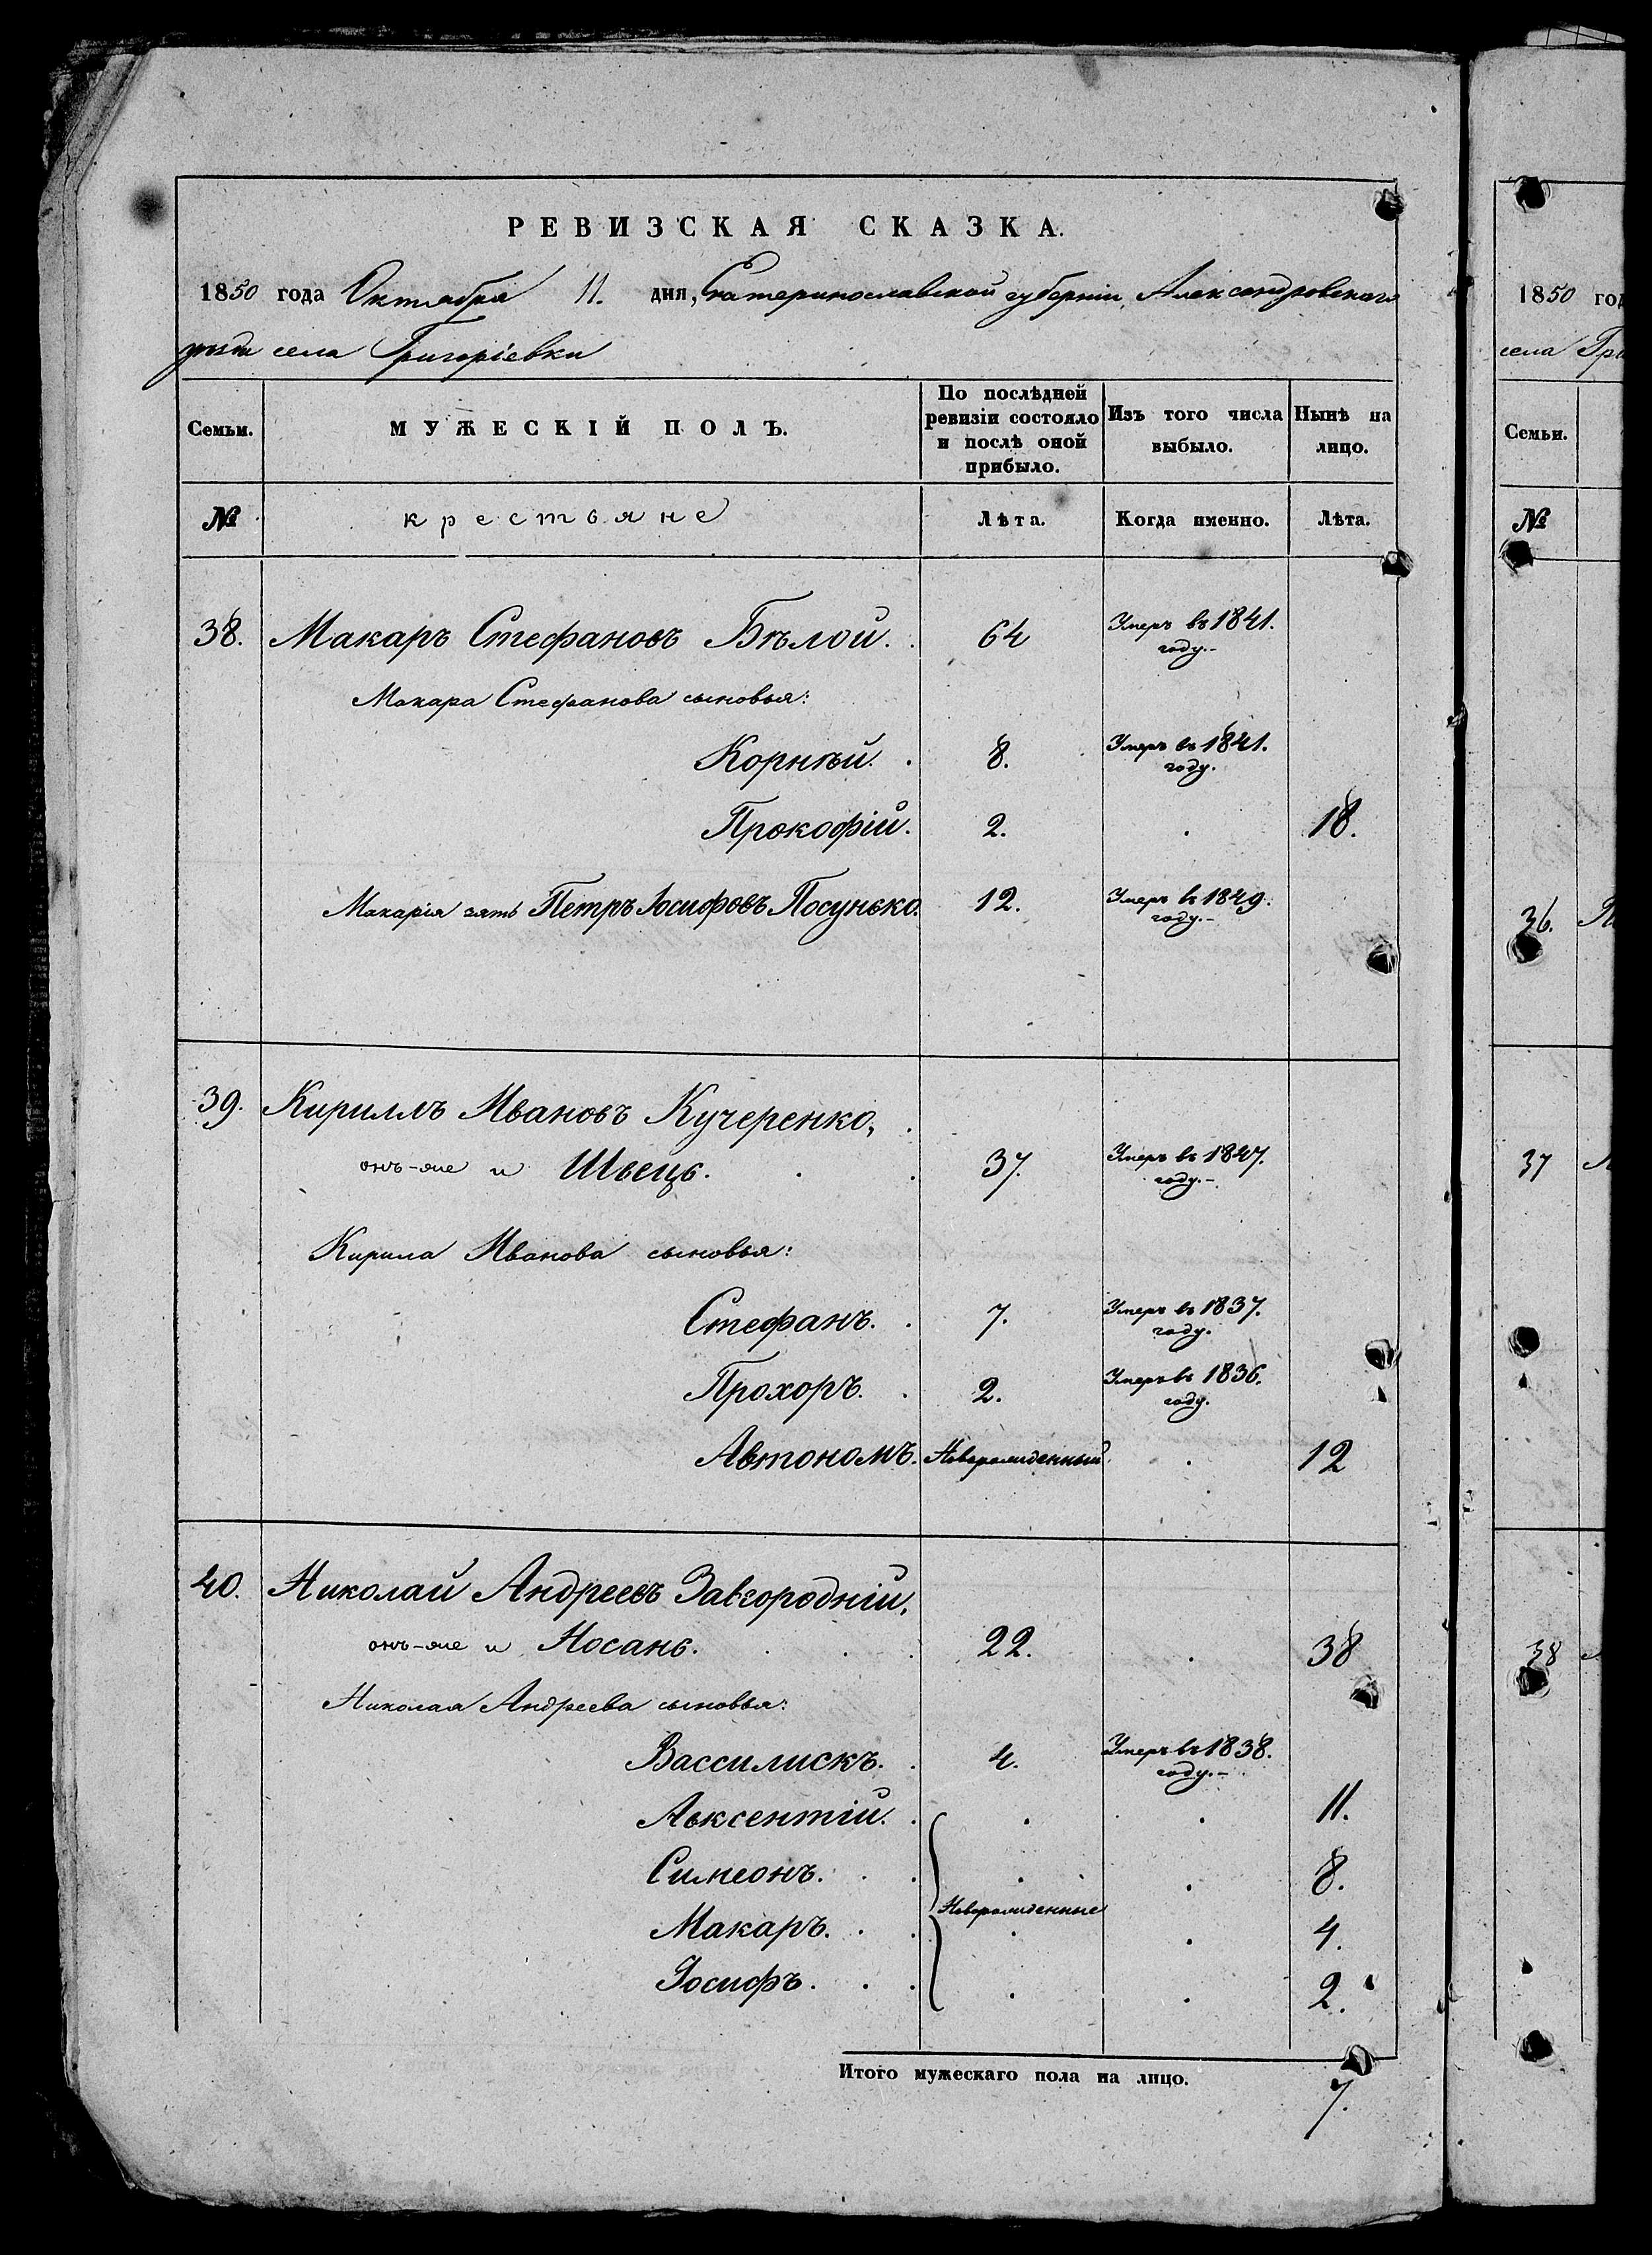 РЕВИЗСКАЯ СКАЗКА.
1850 года Октября 11. дня, Екатеринославской губерніи, Александровскаго
уѣзда села Григоріевки
Семьи.
МУЖЕСКІЙ ПОЛЪ.
По послѣдней ревизіи состояло и послѣ оной прибыло.
Изъ того числа выбыло.
Нынѣ на лицо.
№ крестьяне Лѣта. Когда именно. Лѣта.
38. Макаръ Стефановъ Бѣлой. 64 Умеръ въ 1841. году.-
Макара Стефанова сыновья:
Корнѣй. 8. Умеръ въ 1841. году.
Прокофій. 2. 18.
Макарія зять Петръ Іосифовъ Посунько. 12. Умеръ въ 1849. году.-
39. Кириллъ Ивановъ Кучеренко,
онъ-же и Швець. 37. Умеръ въ 1847. году.-
Кирила Иванова сыновья:
Стефанъ. 7. Умеръ въ 1837. году.
Прохоръ. 2. Умеръ въ 1836. году.
Автономъ. Новорожденный 12
40. Николай Андреевъ Завгородній,
онъ-же и Носань. 22. 38
Николая Андреева сыновья:
Вассилискъ. 4. Умеръ въ 1838. году.-
Авксентій. 11.
Симеонъ. 8.
Новорожденные
Макаръ. 4.
Іосифъ. 2.
Итого мужескаго пола на лицо. 7.
1850 год
села Гри
Семьи.
№
36.
37
38